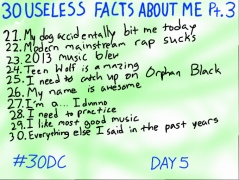 30 USELESS FACTS ABOUT ME Pt.3
21. My dog accidentally bit me today
22. Modern mainstream rap sucks
23. 2013 music blew
24. Teen Wolf is amazing
25. I need to catch up on Orphan Black
26. My name is awesome
27. I'm a... I dunno
28. I need to practice
29. I like most good music
30. Everything else I said in the past years
#30DC DAY 5